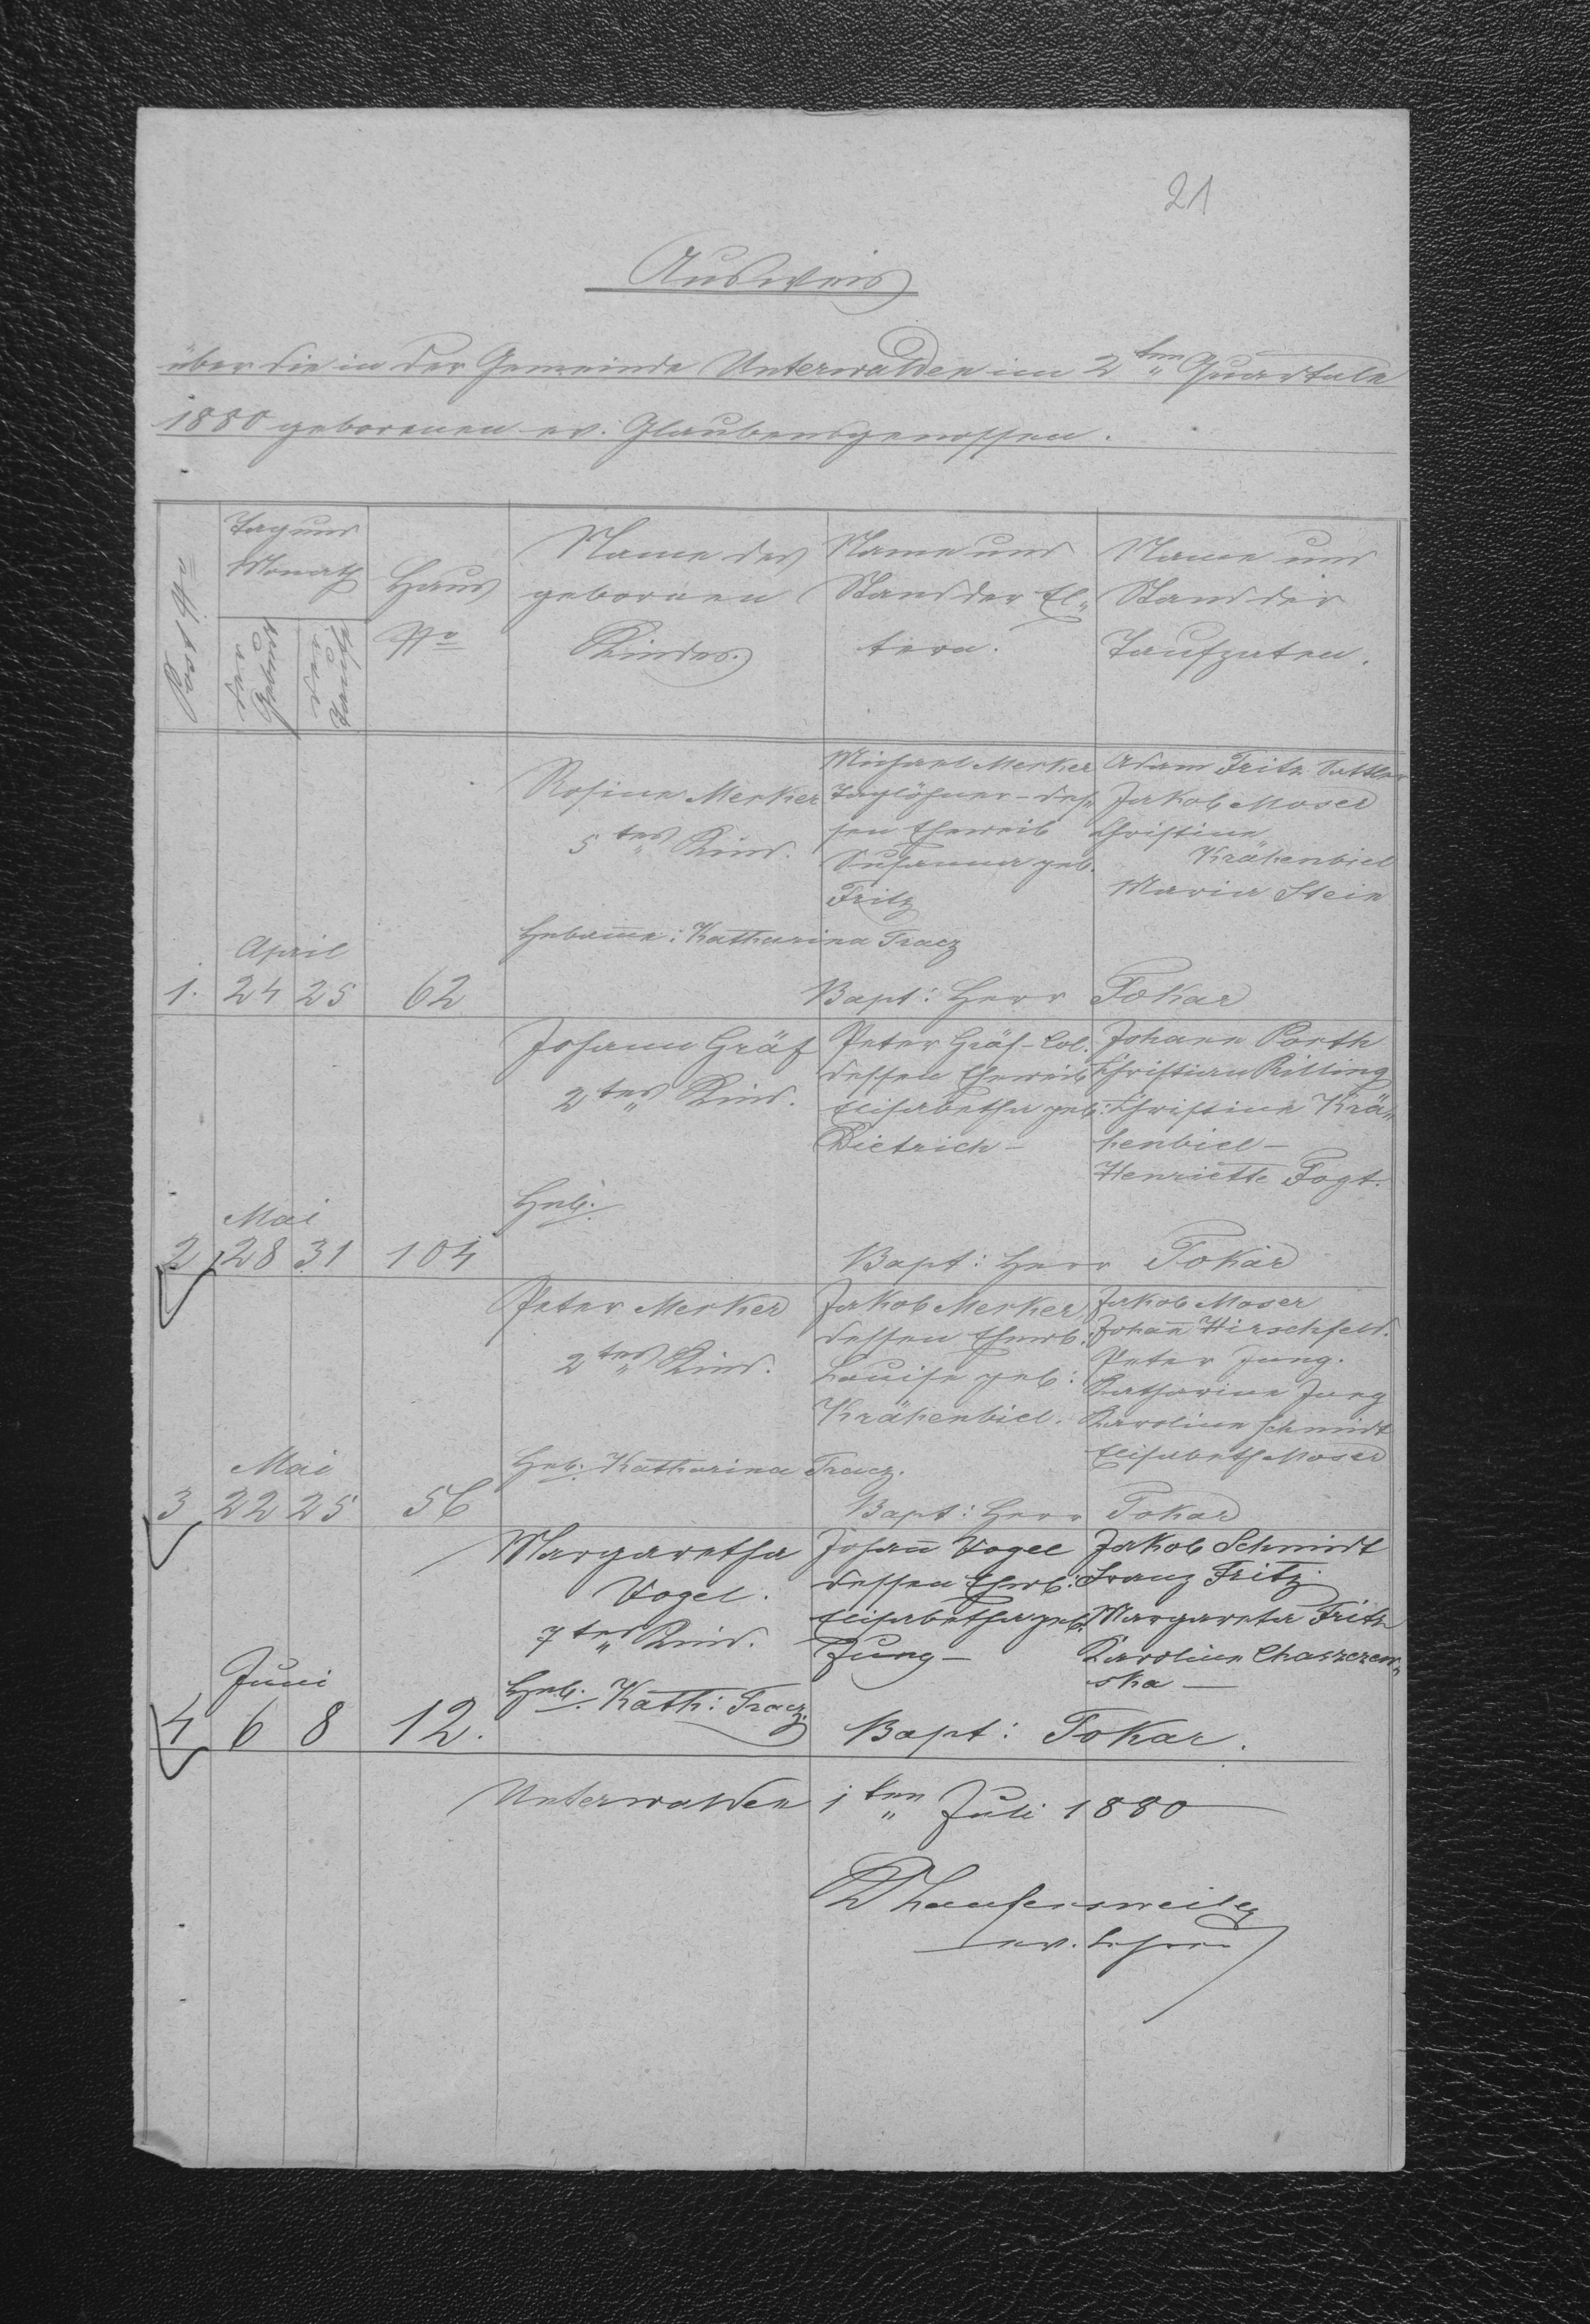 21
Ausweis
über die in der Gemeinde Unterwalden im 2ten Quartale
1880 geborenen ev. Glaubensgenossen.
Post No
Tag und
Monath
der
Geburt
der
Taufe
Haus
No
Name des
gebornen
Kindes.
Name und
Stand der El-
tern.
Name und
Stand der
Taufpaten.
April
1. 24 25 62
Rosine Merker
5tes Kind.
Hebamme: Katharina Tracz
Michael Merker
Taglöhner - des-
sen Eheweib
Susanna geb.
Fritz
Adam Fritz Sattler
Jakob Moser
Christine
Krähenbiel
Maria Stein
Bapt: Herr Tokar
Mai
2 28 31 104
Johann Gräf
2tes Kind.
Heb:
Peter Gräf - Col.
dessen Eheweib
Elisabetha geb:
Dietrich -
Johann Porth
Christian Rilling
Christine Krä-
henbiel -
Henriette Fogt.
Bapt: Herr Tokar
Mai
3 22 25 56
Peter Merker
2tes Kind.
Heb. Katharina Tracz.
Jakob Merker
dessen Ehewb:
Louise geb:
Krähenbiel.
Jakob Moser
Johann Hirschfeld.
Peter Jung.
Katharine Jung
Karoline Schmidt
Elisabeth Moser
Bapt: Herr Tokar
Juni
4 6 8 12.
Margaretha
Vogel.
7tes Kind.
Heb. Kath: Tracz.
Johann Vogel
dessen Ehwb:
Elisabetha geb.
Jung -
Jakob Schmidt
Franz Fritz
Margareta Fritz
Karoline Chaszczew-
ska -
Bapt: Tokar.
Unterwalden 1ten Juli 1880
Lauferswei­ler
ev. Lehrer